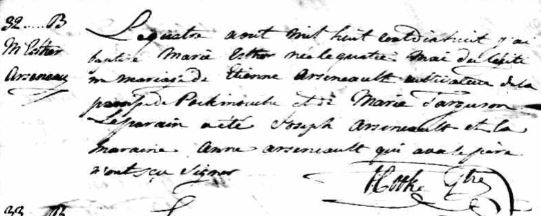 32.....B
M Esther
Arseneau
Le quatre aout mil huit cent dix huit j'ai
batisé Marie Esther née le quatre mai du légite
m mariage de Etienne Arseneault cultivateur de la
paroisse de Pockmouche et de Marie
Le parain a été Joseph Arseneault et la
maraine Anne Arseneault qui avec le père
n'ont sçu signer
Cook Ptre
33 B